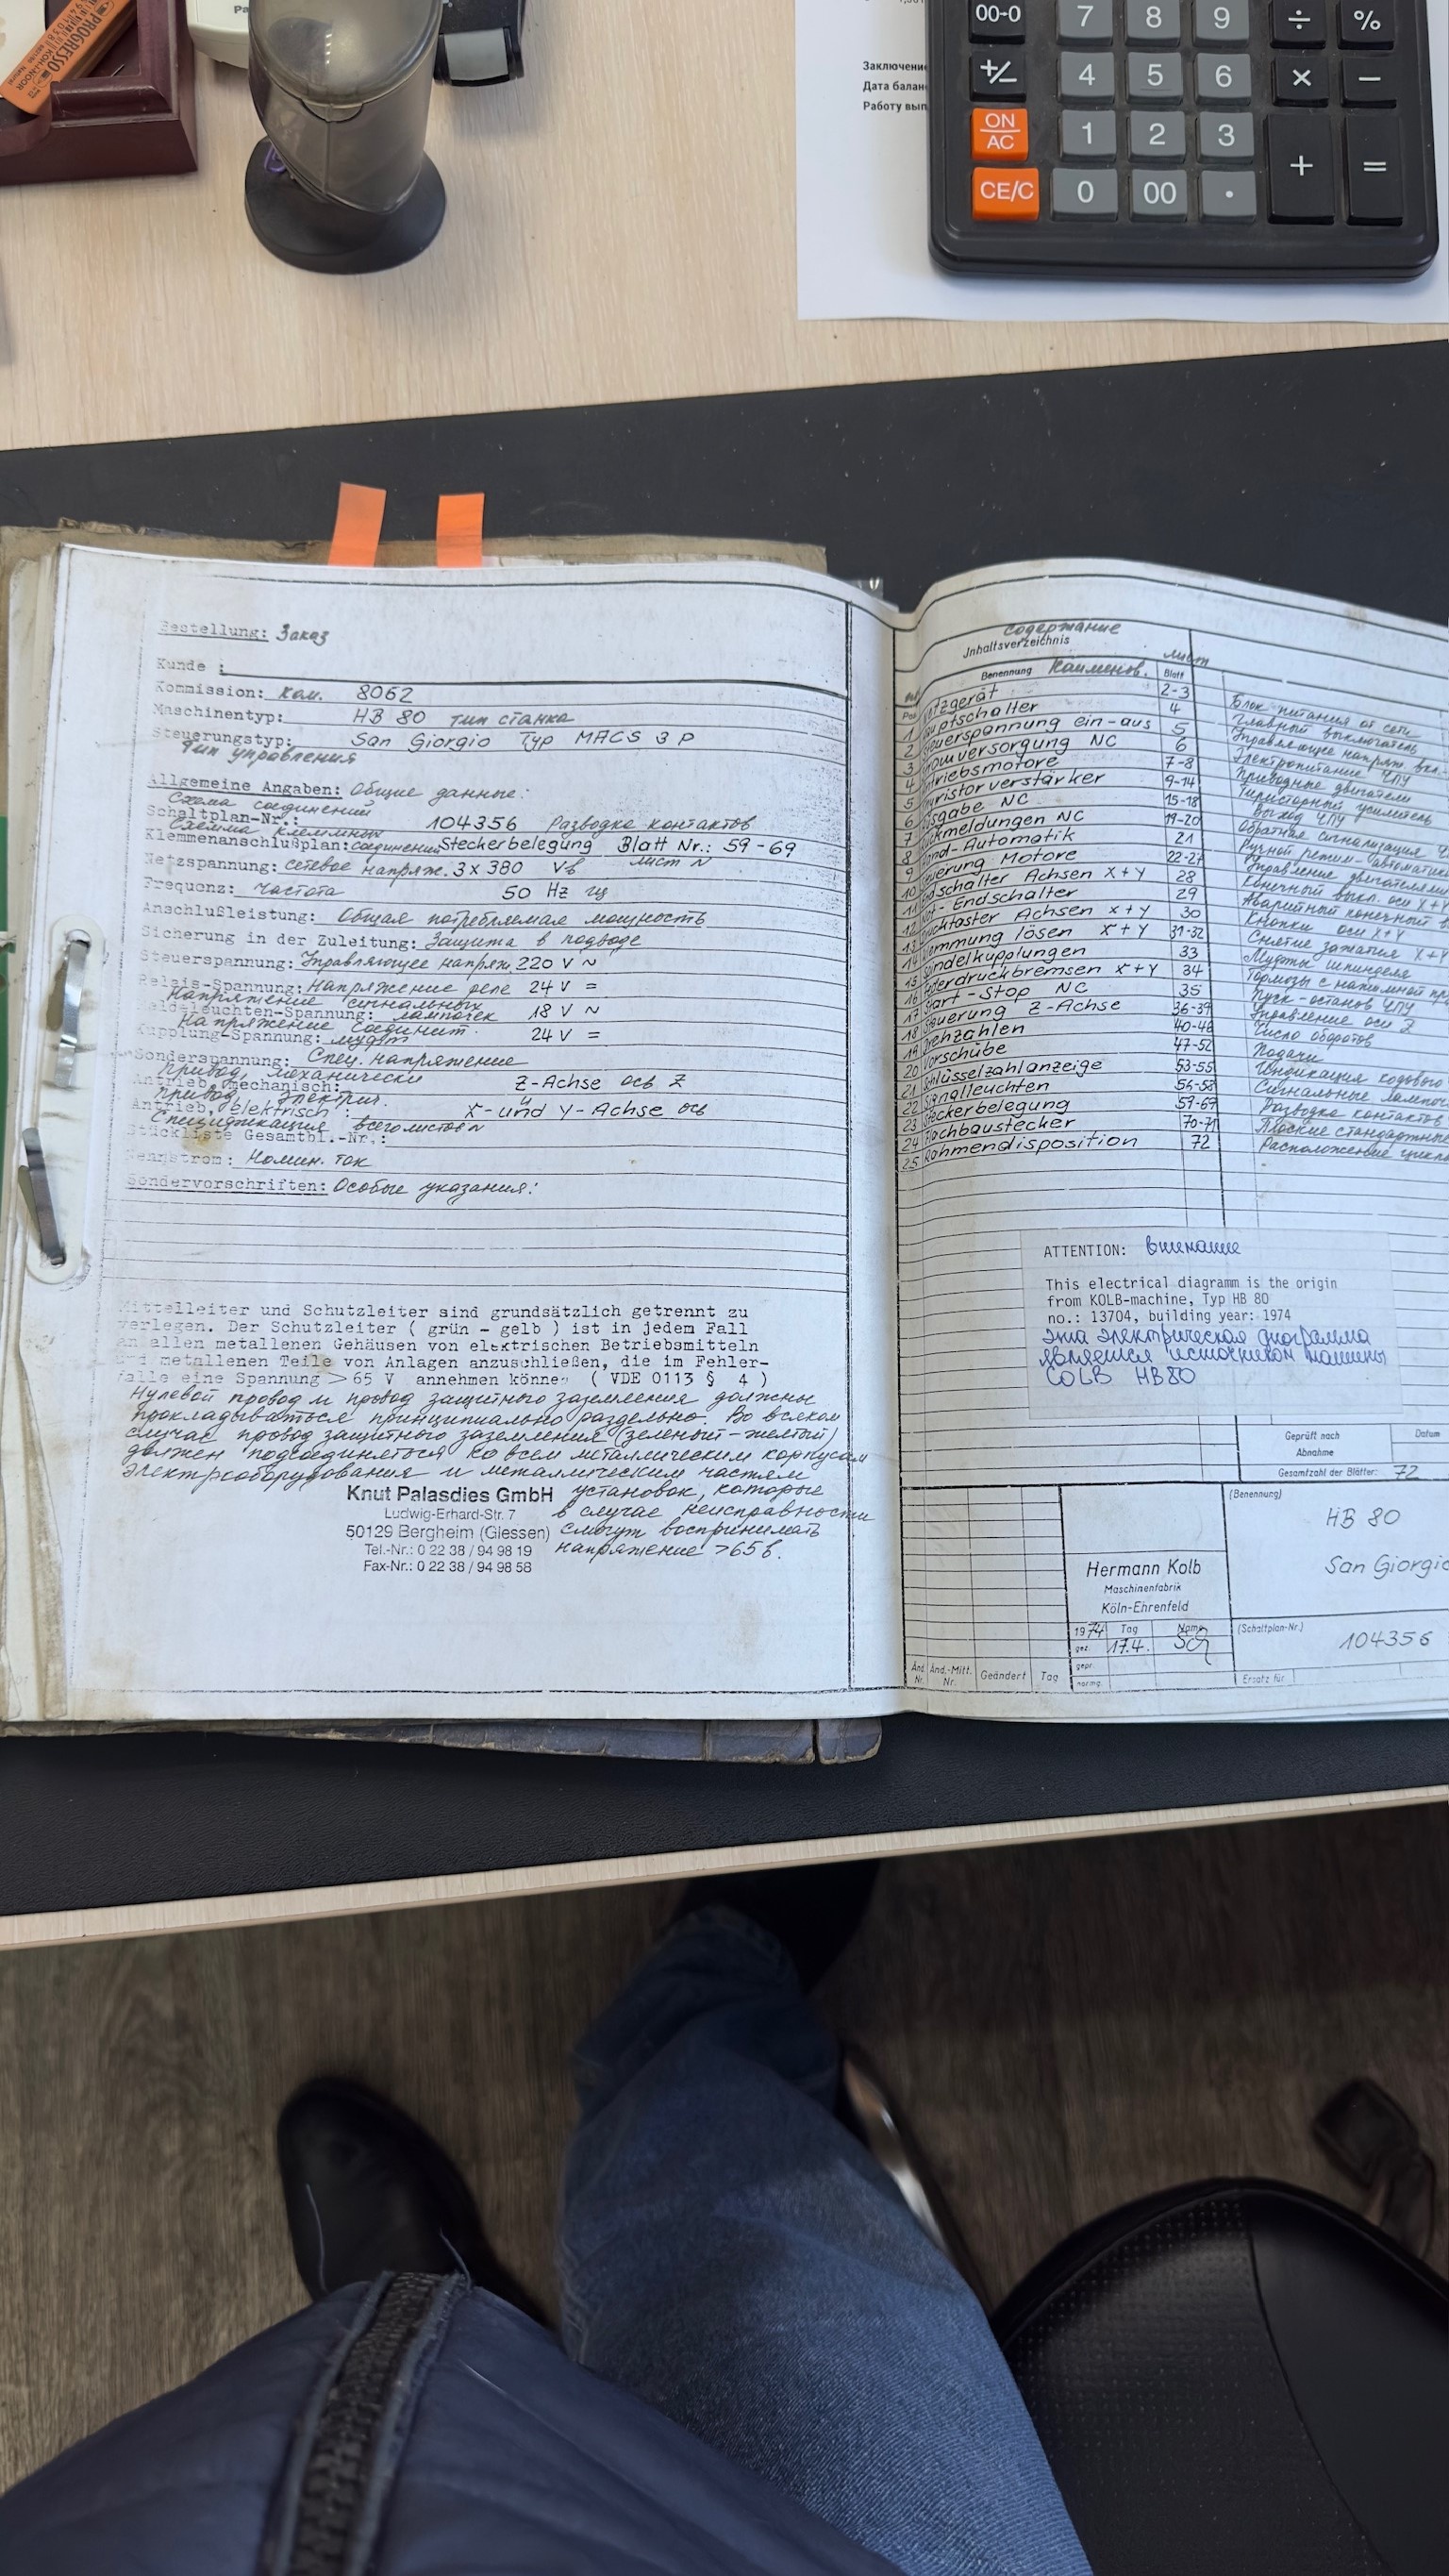 PROGRESSO
KOH-I-NOOR
Pa
Заключение
Дата балан
Работу вып
00-0 7 8 9 ÷ %
+/- 4 5 6 × −
ON/AC 1 2 3 + =
CE/C 0 00 •
Bestellung: Заказ
Kunde :
Kommission: ком. 8062
Maschinentyp: HB 80 тип станка
Steuerungstyp: San Giorgio Typ MACS 3 P
тип управления
Allgemeine Angaben: Общие данные:
Схема соединений
Schaltplan-Nr.: 104356 Разводка контактов
Схемма клеммных
Klemmenanschlußplan: соединений Steckerbelegung Blatt Nr.: 59-69
лист N
Netzspannung: сетевое напряж. 3x 380 V в
Frequenz: Частота 50 Hz гц
Anschlußleistung: Общая потребляемая мощность
Sicherung in der Zuleitung: Защита в подводе
Steuerspannung: Управляющее напряж. 220 V ~
Relais-Spannung: Напряжение реле 24 V =
Напряжение сигнальных
Meldeleuchten-Spannung: лампочек 18 V ~
Напряжение соединит.
Kupplung-Spannung: муфт 24 V =
Sonderspannung: Спец. напряжение
Привод, механически
Antrieb, mechanisch: Z-Achse ось Z
Привод, электрич.
Antrieb, elektrisch : X- und Y-Achse ось
Спецификация всего листов N
Stückliste Gesamtbl.-Nr.:
Nennstrom: Номин. ток
Sondervorschriften: Особые указания:
Mittelleiter und Schutzleiter sind grundsätzlich getrennt zu
verlegen. Der Schutzleiter ( grün - gelb ) ist in jedem Fall
an allen metallenen Gehäusen von elektrischen Betriebsmitteln
und metallenen Teile von Anlagen anzuschließen, die im Fehler-
falle eine Spannung > 65 V annehmen können ( VDE 0113 § 4 )
Нулевой провод и провод защитного заземления должны
прокладываться принципиально раздельно. Во всяком
случае провод защитного заземления (зеленый-желтый)
должен подсоединяться ко всем металлическим корпусам
электрооборудования и металлическим частям
установок, которые
в случае неисправности
смогут воспринимать
напряжение >65 в.
Knut Palasdies GmbH
Ludwig-Erhard-Str. 7
50129 Bergheim (Glessen)
Tel.-Nr.: 0 22 38 / 94 98 19
Fax-Nr.: 0 22 38 / 94 98 58
содержание
Jnhaltsverzeichnis
Benennung Наименов. Blatt лист
Pos
1 Netzgerät 2-3 Блок питания от сети
2 Hauptschalter 4 Главный выключатель
3 Steuerspannung ein-aus 5 Управляющее напряж. вкл.
4 Stromversorgung NC 6 Электропитание ЧПУ
5 Antriebsmotore 7-8 Приводные двигатели
6 Thyristorverstärker 9-14 Тиристорный усилитель
7 Ausgabe NC 15-18 Выход ЧПУ
8 Rückmeldungen NC 19-20 Обратная сигнализация
9 Hand-Automatik 21 Ручной режим-автоматик
10 Steuerung Motore 22-27 Управление двигателями
11 Endschalter Achsen X+Y 28 Конечный выкл. оси X+Y
12 Not-Endschalter 29 Аварийный конечный в
13 Drucktaster Achsen X+Y 30 Кнопки оси X+Y
14 Klemmung lösen X+Y 31-32 Снятие зажатия X+Y
15 Spindelkupplungen 33 Муфты шпинделя
16 Federdruckbremsen X+Y 34 Тормозы с нажимной пр
17 Start-Stop NC 35 Пуск-останов ЧПУ
18 Steuerung Z-Achse 36-39 Управление оси Z
19 Drehzahlen 40-46 Число оборотов
20 Vorschübe 47-52 Подачи
21 Schlüsselzahlanzeige 53-55 Индикация кодового
22 Signalleuchten 56-58 Сигнальные лампоч
23 Steckerbelegung 59-69 Разводка контактов
24 Flachbaustecker 70-71 Плоские стандартные
25 Rahmendisposition 72 Расположение
ATTENTION: внимание
This electrical diagramm is the origin
from KOLB-machine, Typ HB 80
no.: 13704, building year: 1974
эта электрическая диаграмма
является источником машины
COLB HB80
Geprüft nach Datum
Abnahme
Gesamtzahl der Blätter: 72
(Benennung)
HB 80
San Giorgio
Hermann Kolb
Maschinenfabrik
Köln-Ehrenfeld
1974 Tag Name
gez. 17.4.
gepr.
normg.
(Schaltplan-Nr.)
104356
Ersatz für
Änd. Nr. Änd.-Mitt. Nr. Geändert Tag